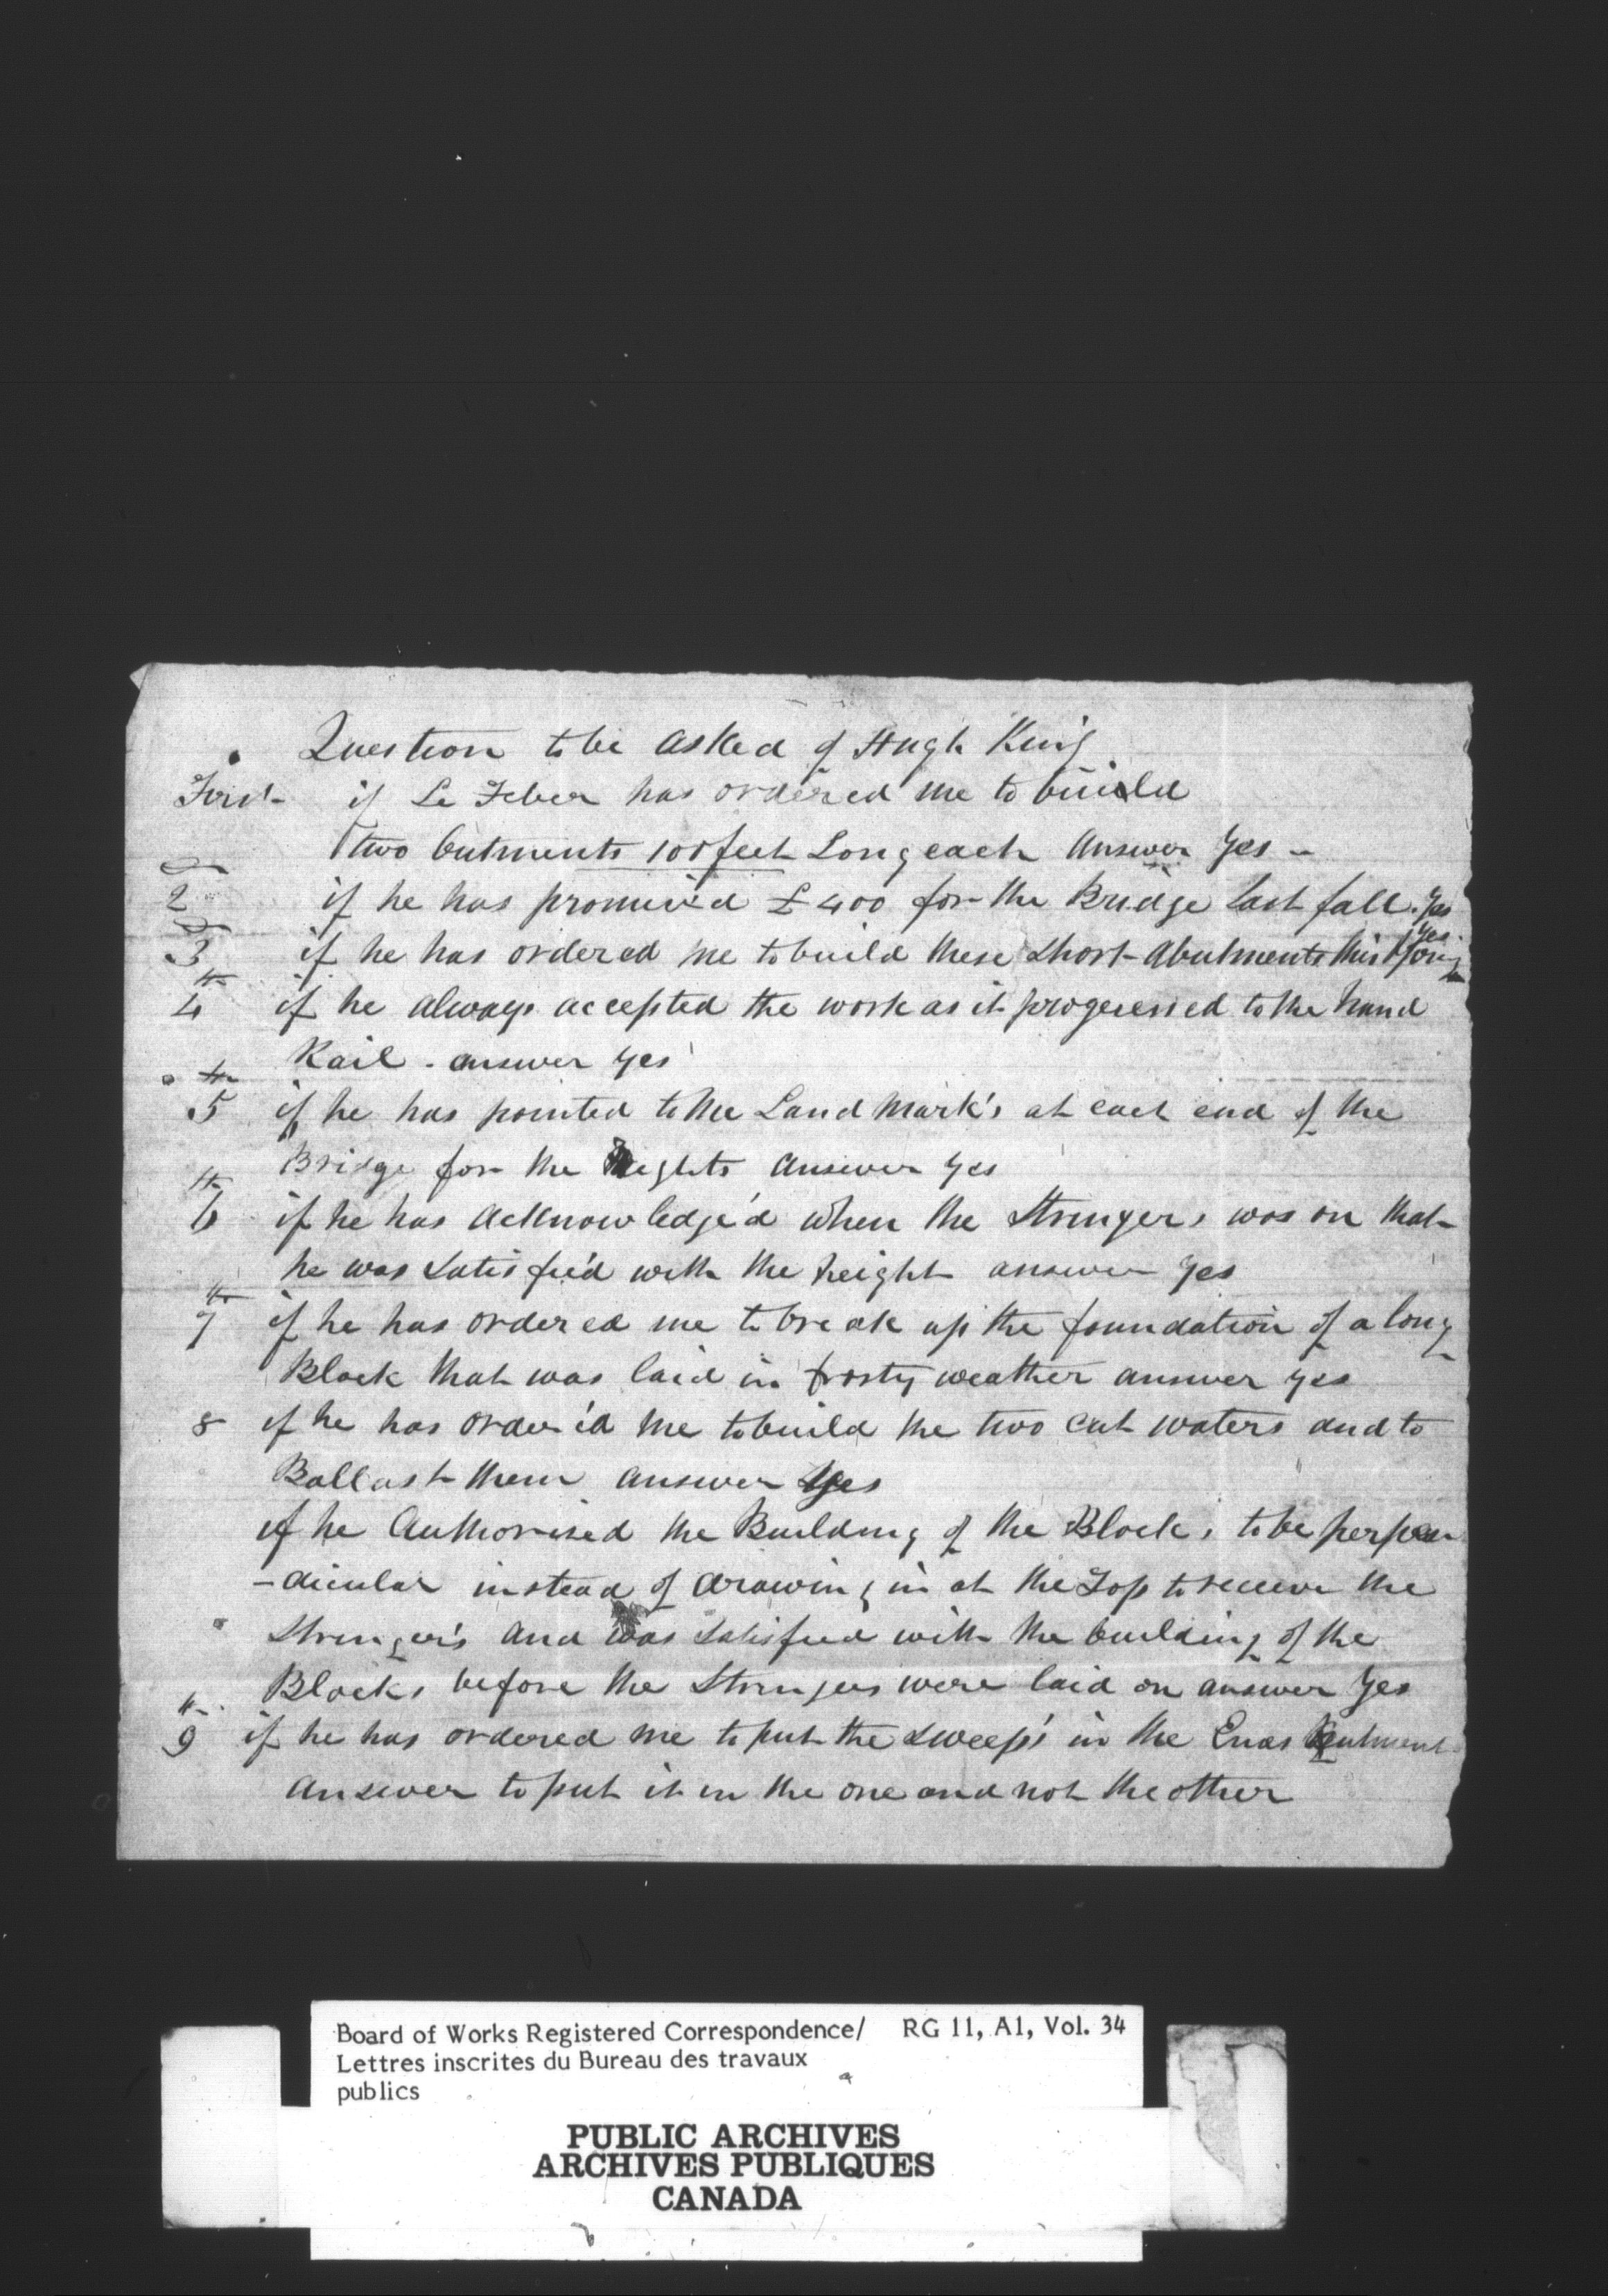 Question to be asked of Hugh King
First if Le Feber has ordered me to build
two butments 100 feet Long each Answer Yes -
2d if he has promised £400 for the Bridge last fall. Yes
3d if he has ordered me to build these short Abutments this yes.
4th if he always accepted the work as it progressed to the hand
Rail - answer yes
5th if he has pointed to the Land Mark's at each end of the
Bridge for the heights answer yes
6th if he has acknowledge'd when the Stringers was on that
he was Satisfie'd with the height answer yes
7th if he has ordered me to break up the foundation of a long
Block that was laid in frosty weather answer yes
8 if he has order'd me to build the two cut waters and to
Ballast them answer yes
if he Authorised the Building of the Blocks to be perpen
-dicular instead of drawing in at the Top to receve the
Stringer's and was Satisfied with the building of the
Blocks before the Stringers were laid on answer Yes
9th if he has ordered me to put the Sweep's in the Ends butment
answer to put it in the one and not the other
Board of Works Registered Correspondence/ RG 11, A1, Vol. 34
Lettres inscrites du Bureau des travaux
publics
PUBLIC ARCHIVES
ARCHIVES PUBLIQUES
CANADA